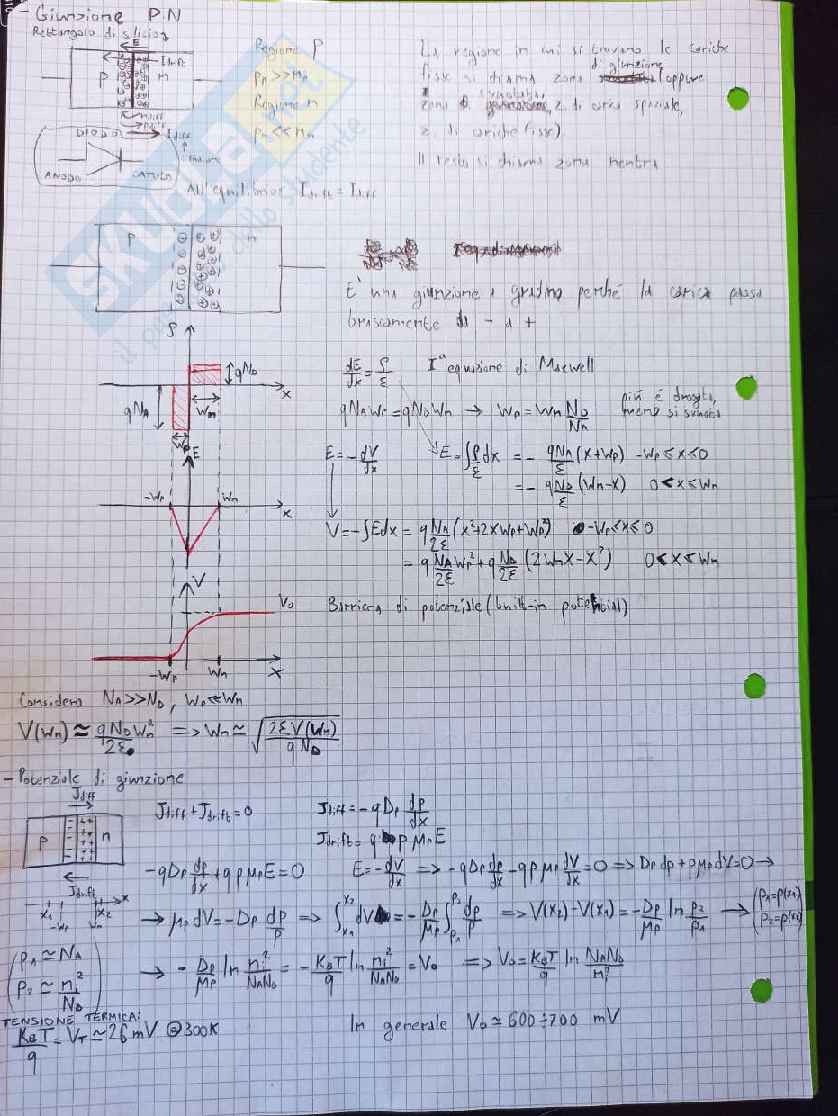 - Giunzione P.N
Rettangolo di silicio
E
Idrift
p n
Idiff
DIODO
ANODO CATODO
Regione P
Regione n
La regione in cui si trovano le cariche
fisse si chiama zona di giunzione (oppure
zona di svuotata, z. di carica spaziale,
z. di cariche fisse)
Il resto si chiama zona neutra
All'equilibrio Idrift = Idiff
p n
E' una giunzione a gradino perché la carica passa
bruscamente da - a +
ρ
qND
qNA
Wn
Wp
x
dE/dx = ρ/ε I° equazione di Maxwell
qNAWp = qNDWn → Wp = Wn ND/NA
più è drogata,
meno si svuota
E
-Wp Wn
x
E = -dV/dx E = ∫ρ/ε dx = - qNA/ε (x+Wp) -Wp ≤ x ≤ 0
= - qND/ε (Wn-x) 0 < x ≤ Wn
V = -∫Edx = q NA/2ε (x²+2xWp+Wp²) -Wp ≤ x ≤ 0
= q NA/2ε Wp² + q ND/2ε (2Wnx-x²) 0 < x ≤ Wn
V
V0
-Wp Wn x
Barriera di potenziale (built-in potential)
Considero NA>>ND, Wp≪Wn
V(Wn) ≃ qNDWn²/2ε => Wn ≃ √(2εV(Wn)/qND)
- Potenziale di giunzione
Jdiff
p n
Jdrift
x1 -Wp Wn x2 x
Jdiff + Jdrift = 0 Jdiff = -qDp dp/dx
Jdrift = q p μp E
-qDp dp/dx + q p μp E = 0 E = -dV/dx => -qDp dp/dx - qp μp dV/dx = 0 => Dp dp + p μp dV = 0 →
→ μp dV = -Dp dp/p => ∫x1x2 dV = -Dp/μp ∫p1p2 dp/p => V(x2)-V(x1) = -Dp/μp ln p2/p1 → (p1=p(x1)
p2=p(x2))
(p1 ≃ NA
p2 ≃ ni²/ND)
→ - Dp/μp ln ni²/NAND = - KBT/q ln ni²/NAND = V0 => V0 = KBT/q ln NAND/ni²
TENSIONE TERMICA:
KBT/q = VT ≃ 26 mV @300K
In generale V0 ≃ 600÷700 mV